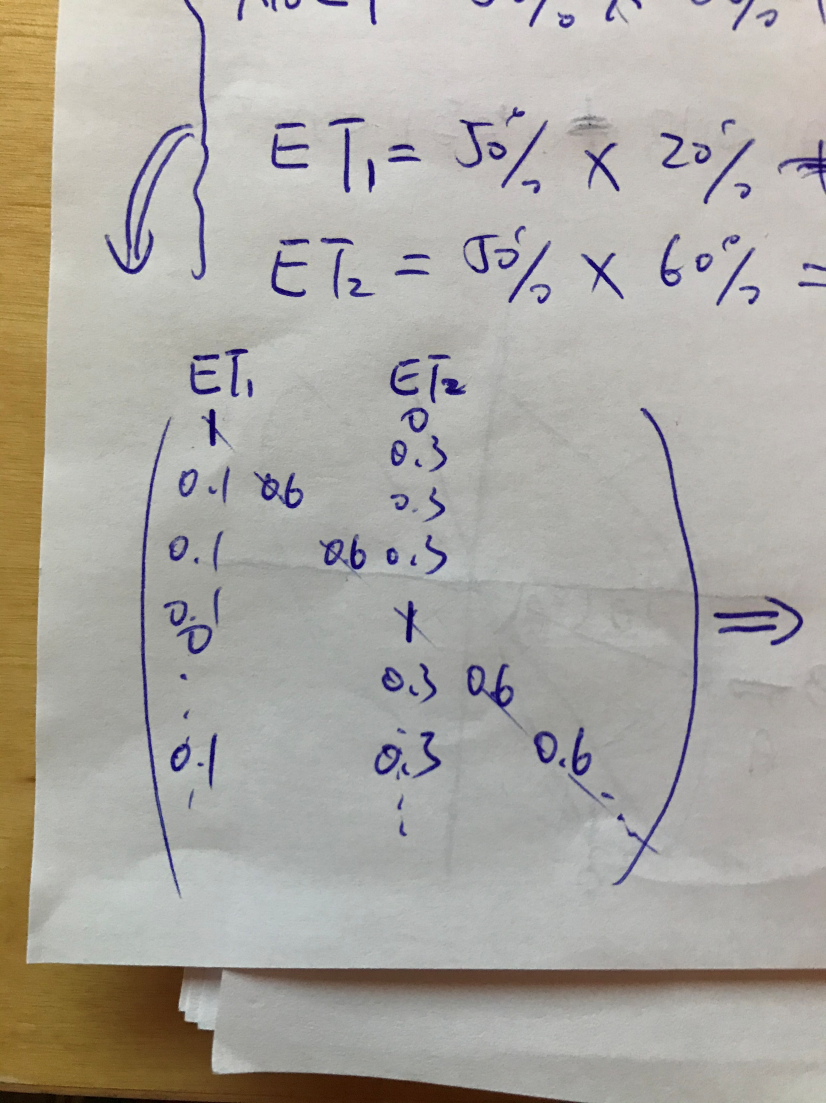 ET₁ = 50% × 20%
ET₂ = 50% × 60% =
ET₁ ET₂
1 0
0.3
0.1 0.6 0.3
0.1 0.6 0.3
0.1
0 1
0.3 0.6
0.1 0.3 0.6
⇒